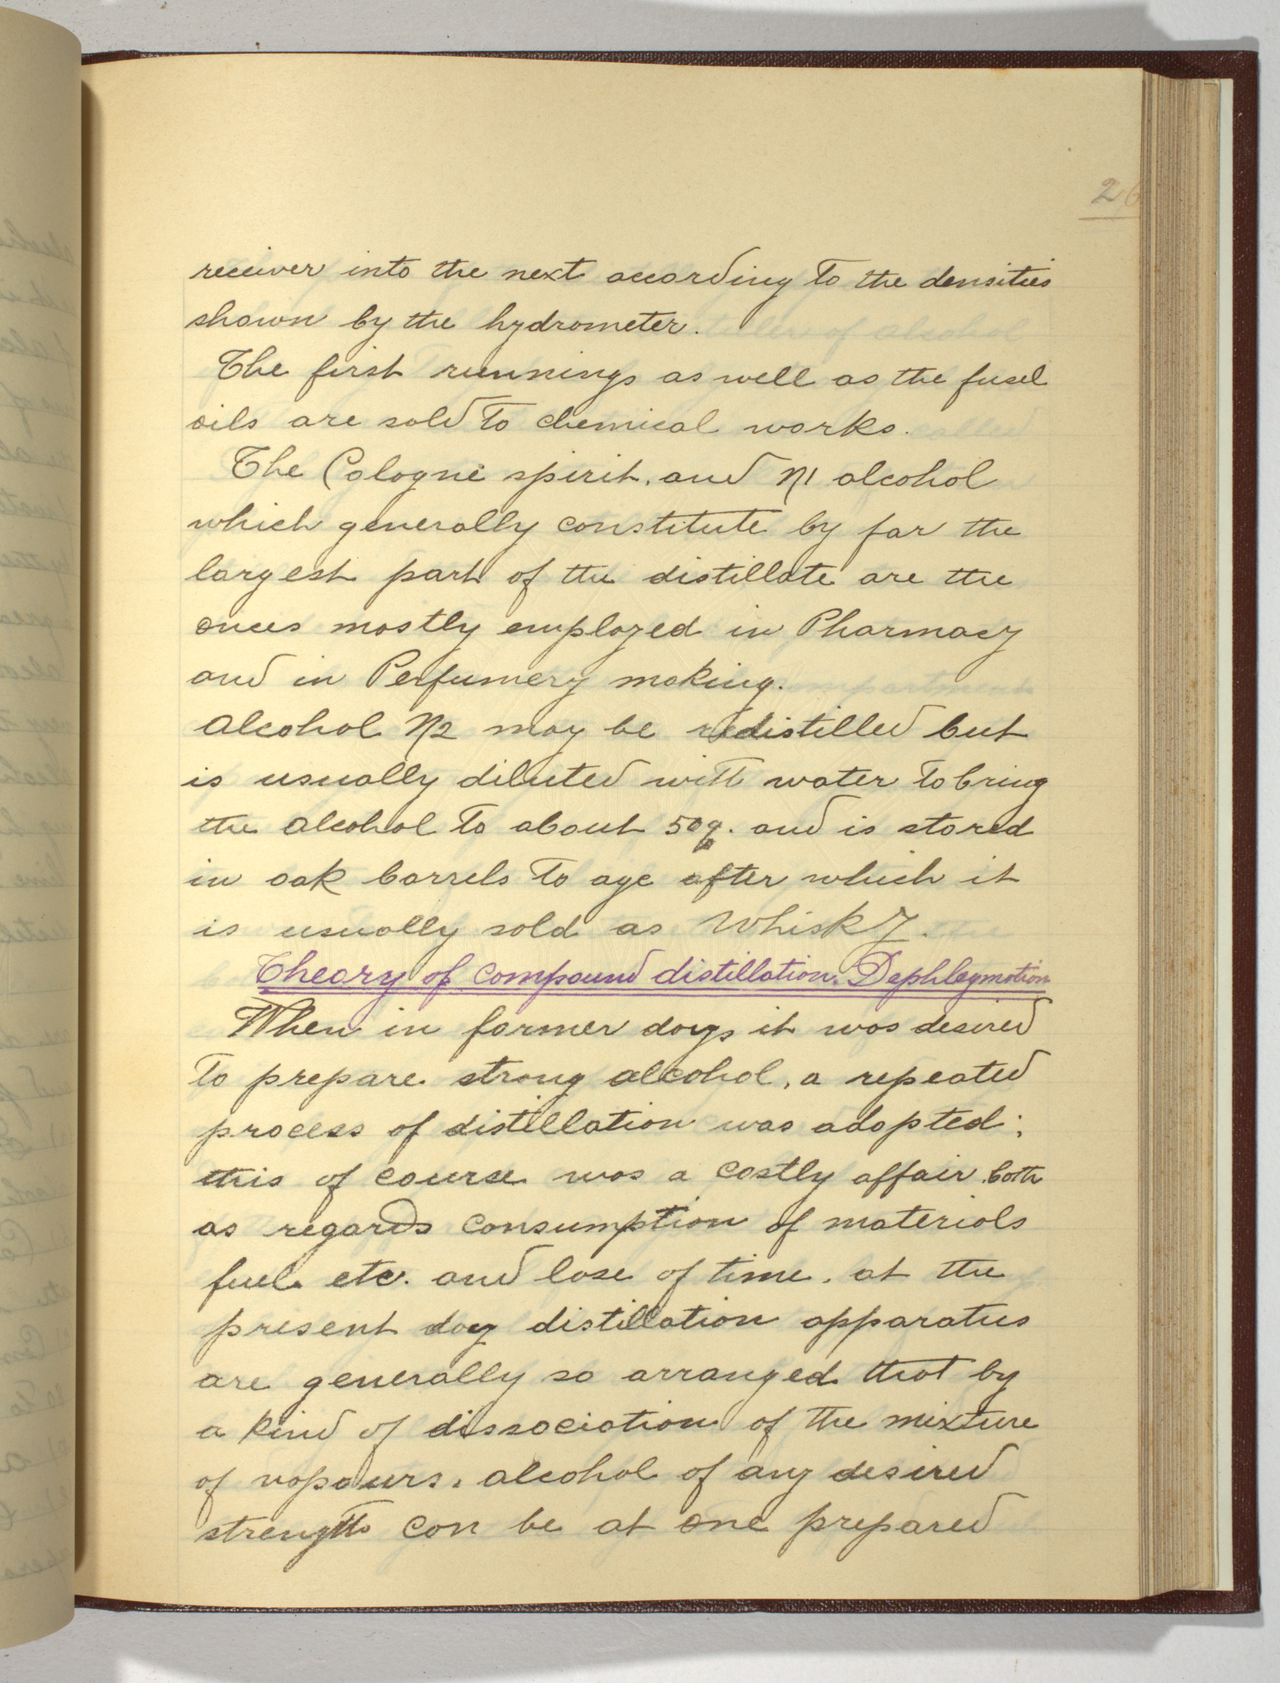 26
receiver into the next according to the densities
shown by the hydrometer.
The first runnings as well as the fusel
oils are sold to chemical works.
The Cologne spirit, and N1 alcohol
which generally constitute by far the
largest part of the distillate are the
ones mostly employed in Pharmacy
and in Perfumery making.
Alcohol N2 may be redistilled but
is usually diluted with water to bring
the alcohol to about 50%. and is stored
in oak barrels to age after which it
is usually sold as Whisky.
Theory of compound distillation. Dephlegmotion
When in former days it was desired
to prepare strong alcohol, a repeated
process of distillation was adopted;
this of course was a costly affair both
as regards consumption of materials
fuel etc. and lose of time. at the
present day distillation apparatus
are generally so arranged that by
a kind of dissociation of the mixture
of vapours, alcohol of any desired
strength can be at one prepared